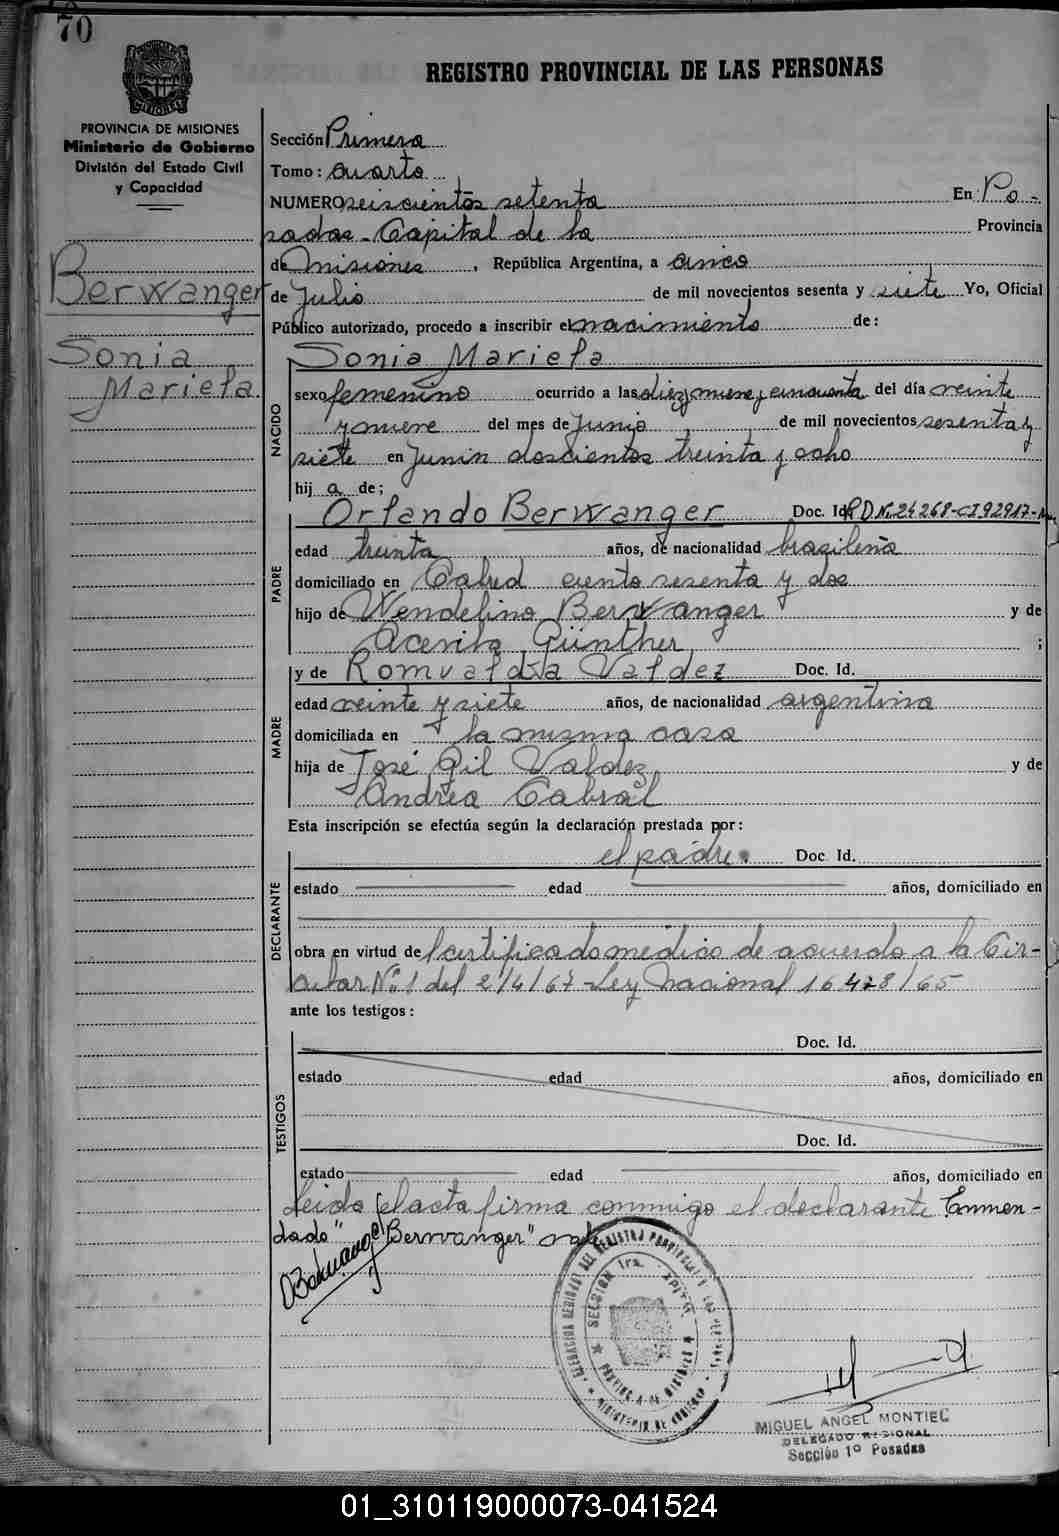 70
REGISTRO PROVINCIAL DE LAS PERSONAS
PROVINCIA DE MISIONES
Ministerio de Gobierno
División del Estado Civil
y Capacidad
Berwanger
Sonia
Mariela
Sección Primera
Tomo: cuarto
NUMERO seiscientos setenta En Po-
sadas - Capital de la Provincia
de Misiones, República Argentina, a cinco
de Julio de mil novecientos sesenta y siete Yo, Oficial
Público autorizado, procedo a inscribir el nacimiento de:
NACIDO
Sonia Mariela
sexo femenino ocurrido a las diez y nueve y cincuenta del día veinte
y nueve del mes de Junio de mil novecientos sesenta y
siete en Junin doscientos treinta y ocho
hij a de;
PADRE
Orlando Berwanger Doc. Id. R.D.N. 24268-CI 92917-
edad treinta años, de nacionalidad brasileña
domiciliado en Cabred ciento sesenta y dos
hijo de Wendelino Berwanger y de
Günther ;
MADRE
y de Romualda Valdez Doc. Id.
edad veinte y siete años, de nacionalidad argentina
domiciliada en la misma casa
hija de José Gil Valdez y de
Andrea Cabral
Esta inscripción se efectúa según la declaración prestada por:
DECLARANTE
el padre. Doc. Id.
estado edad años, domiciliado en
obra en virtud de certificado médico de acuerdo a la Cir-
cular Nº 1 del 2/4/67 - Ley Nacional 16478/65
ante los testigos:
TESTIGOS
Doc. Id.
estado edad años, domiciliado en
Doc. Id.
estado edad años, domiciliado en
Leida el acta firma conmigo el declarante Enmen-
dado "Berwanger" vale
OBerwanger
SECCION 1ra.
PROVINCIA DE MISIONES
MINISTERIO DE GOBIERNO
MIGUEL ANGEL MONTIEL
DELEGADO REGIONAL
Sección 1º Posadas
01_310119000073-041524